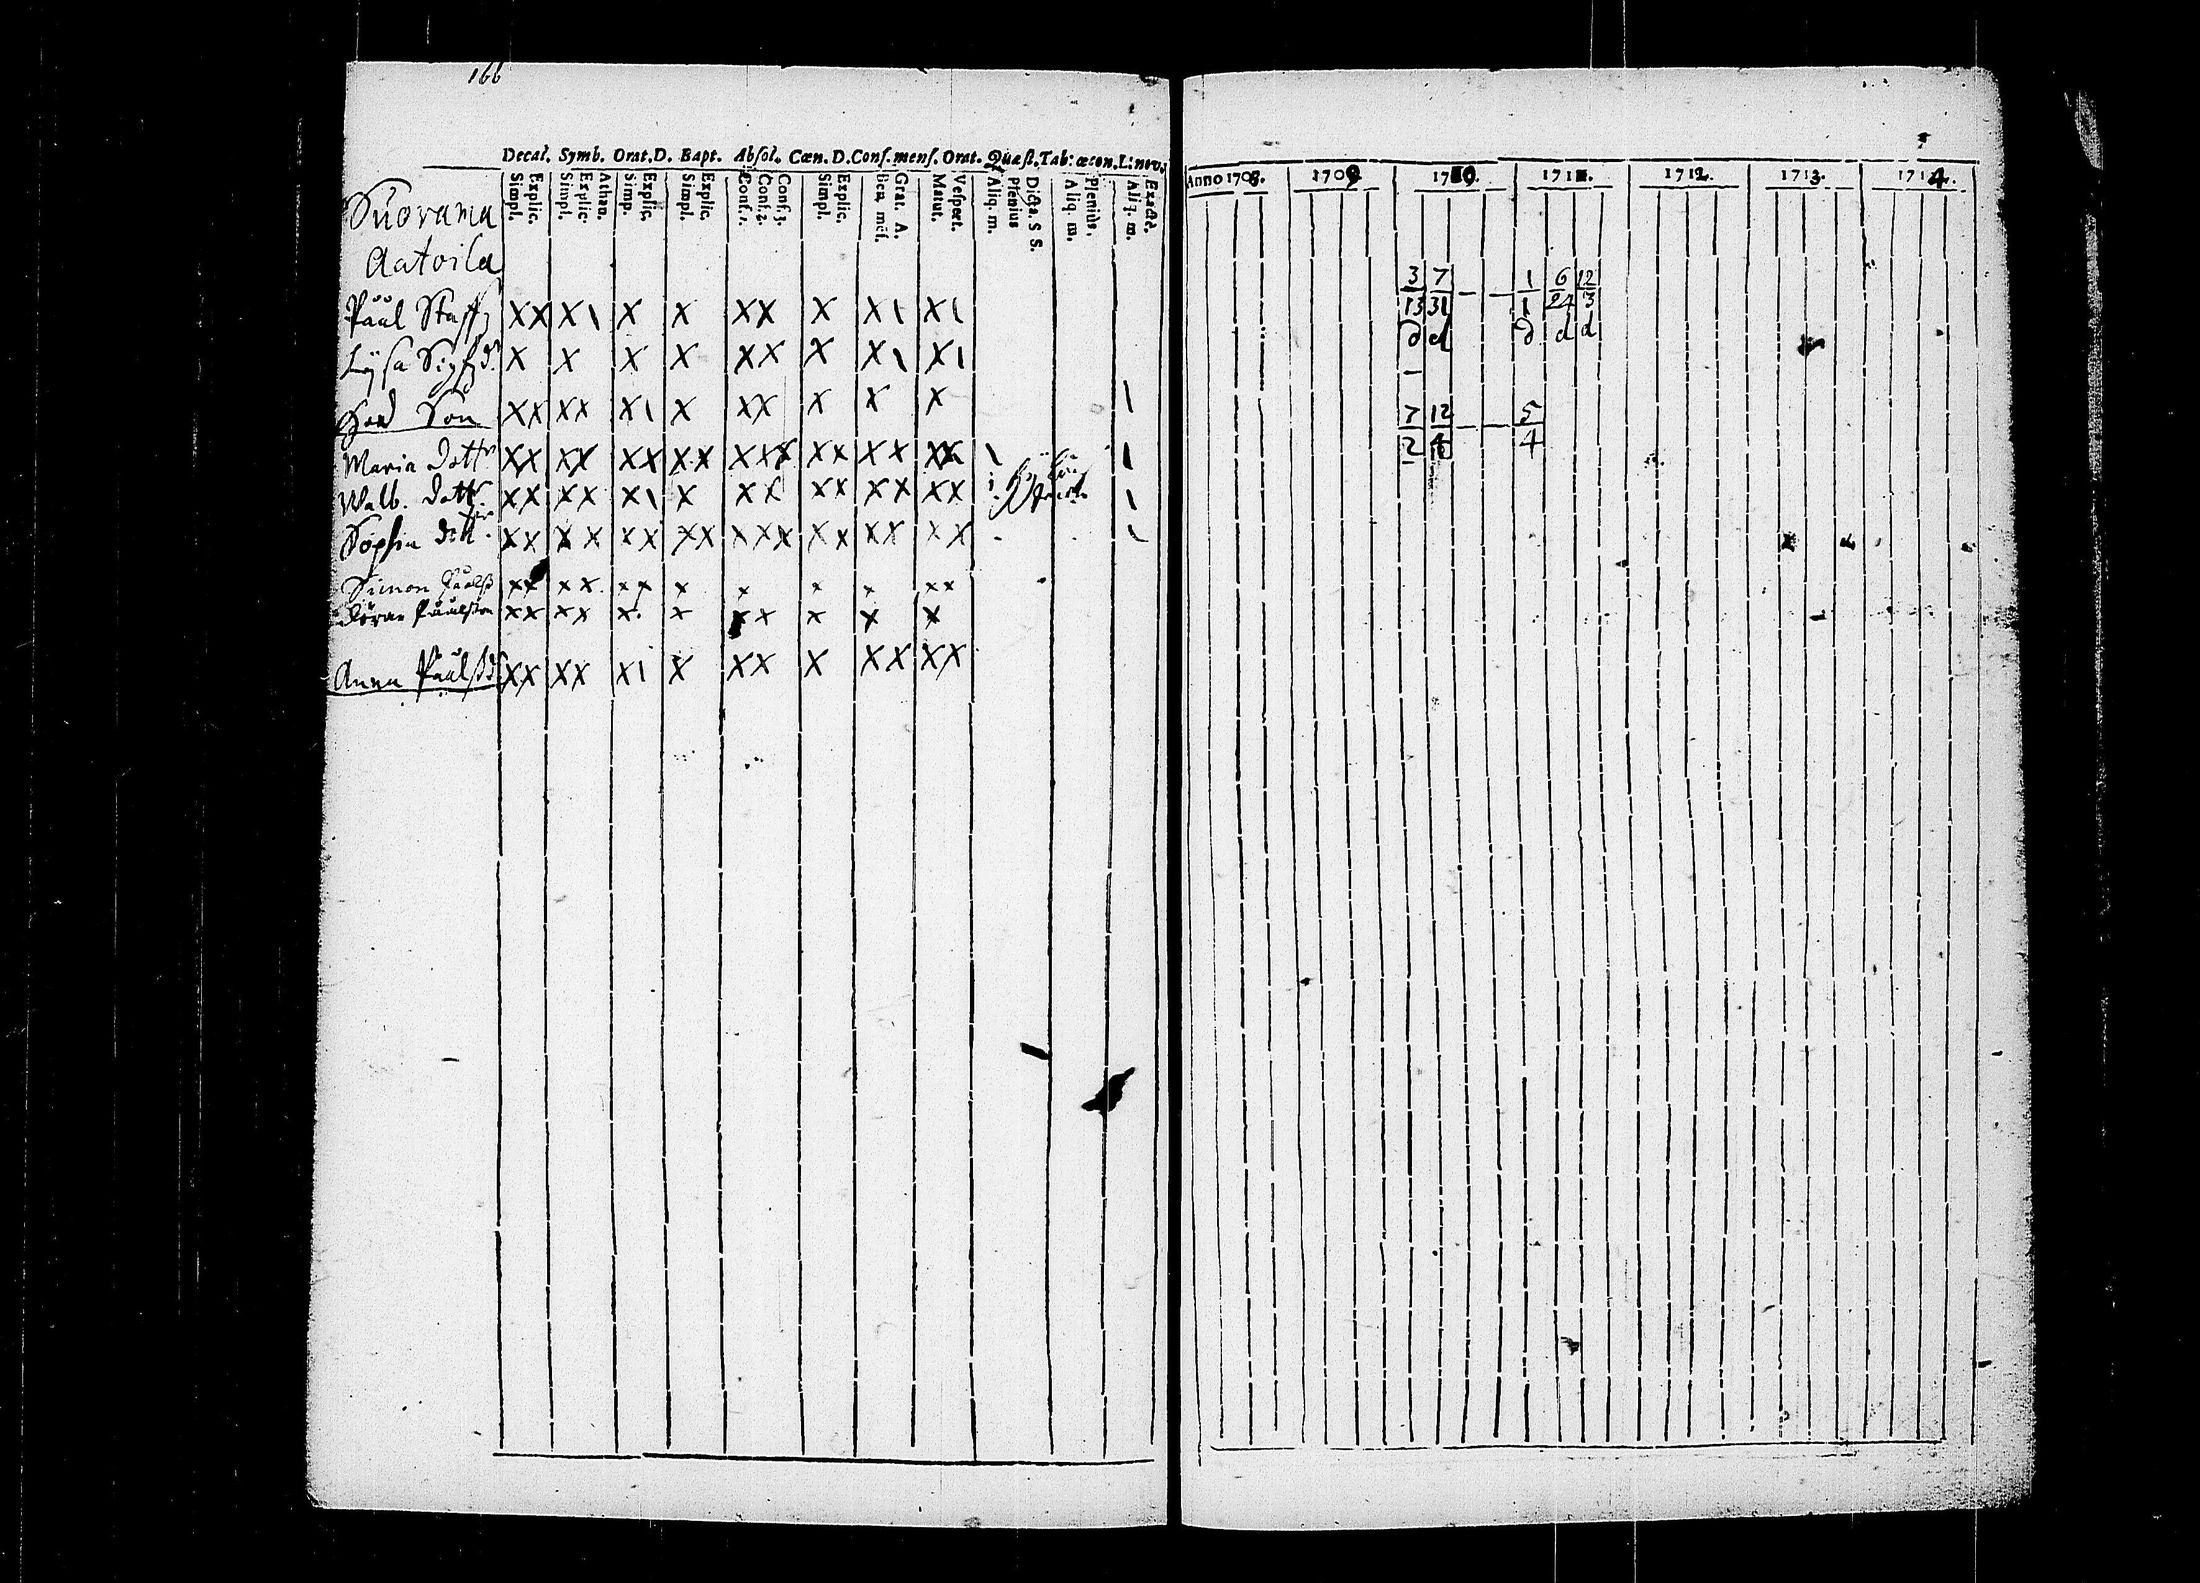 166
Decal. Symb. Orat. D. Bapt. Absol. Cœn. D. Conf. mens. Orat. Quæst. Tab: œcon. L: nov.
Simpl. Explic. Simpl. Explic. Athan. Simp. Explic. Simpl. Explic. Conf. 1. Conf. 2. Conf. 3. Simpl. Explic. Ben. mēs. Grat. A. Matut. Vespert. Aliq. m. Plenius Dicta. S S. Aliq. m. Plenius. Aliq. m. Exacte.
Suorama
Aatoila
Påul Staff X X X \ X X X X X X \ X \
Lysa X X X X X X X X \ X \
Son X X X X X \ X X X X X X \
Maria dottr X X X X X X X X X X X X X X X X X \ \
Walb. dottr X X X X X \ X X X X X X X X X \
Sophia dottr X X X X X X X X X X X X X X X X X
Simon X X X X X X X X X X X X X
Påulsson X X X X X X X X X X X
Anna Påulsd X X X X X \ X X X X X X X X
Anno 1708. 1709. 1710. 1711. 1712. 1713. 1714.
3 7 1 6 12
13 31 - - 1 24 3
d d d d d
-
7 12 5
2 4 - - 4